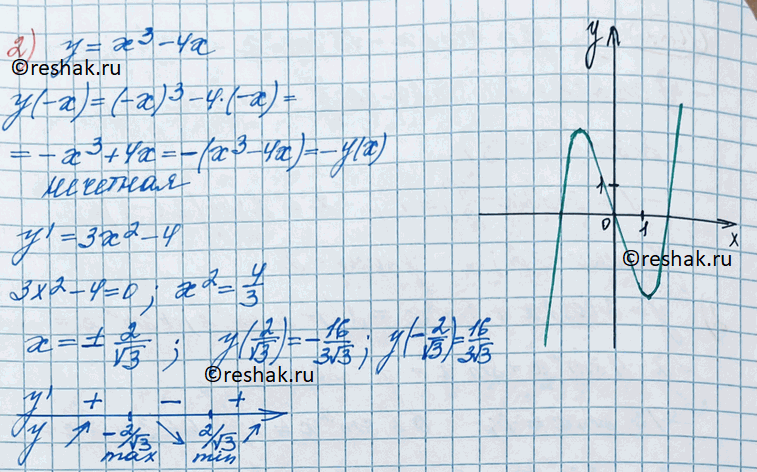 2) y = x³ - 4x
©reshak.ru
y(-x) = (-x)³ - 4·(-x) =
= -x³ + 4x = -(x³ - 4x) = -y(x)
нечетная
y' = 3x² - 4
3x² - 4 = 0; x² = 4/3
x = ± 2/√3; y(2/√3) = -16/3√3; y(-2/√3) = 16/3√3
©reshak.ru
y' + - +
y ↗ -2/√3 ↘ 2/√3 ↗
max min
y
1
0 1
x
©reshak.ru